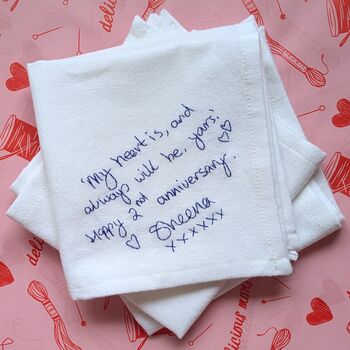 'My heart is, and
always will be, yours.'
Happy 2nd anniversary.
Sheena
xxxxxx
deli
licious